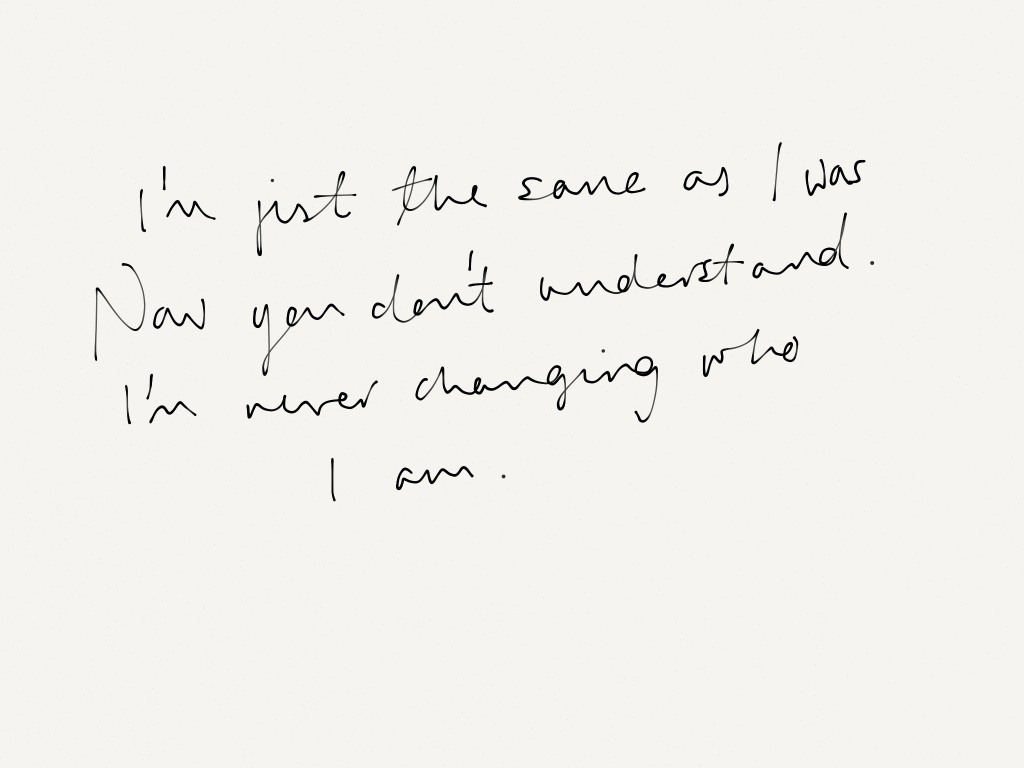 I'm just the same as I was
Now you don't understand.
I'm never changing who
I am.